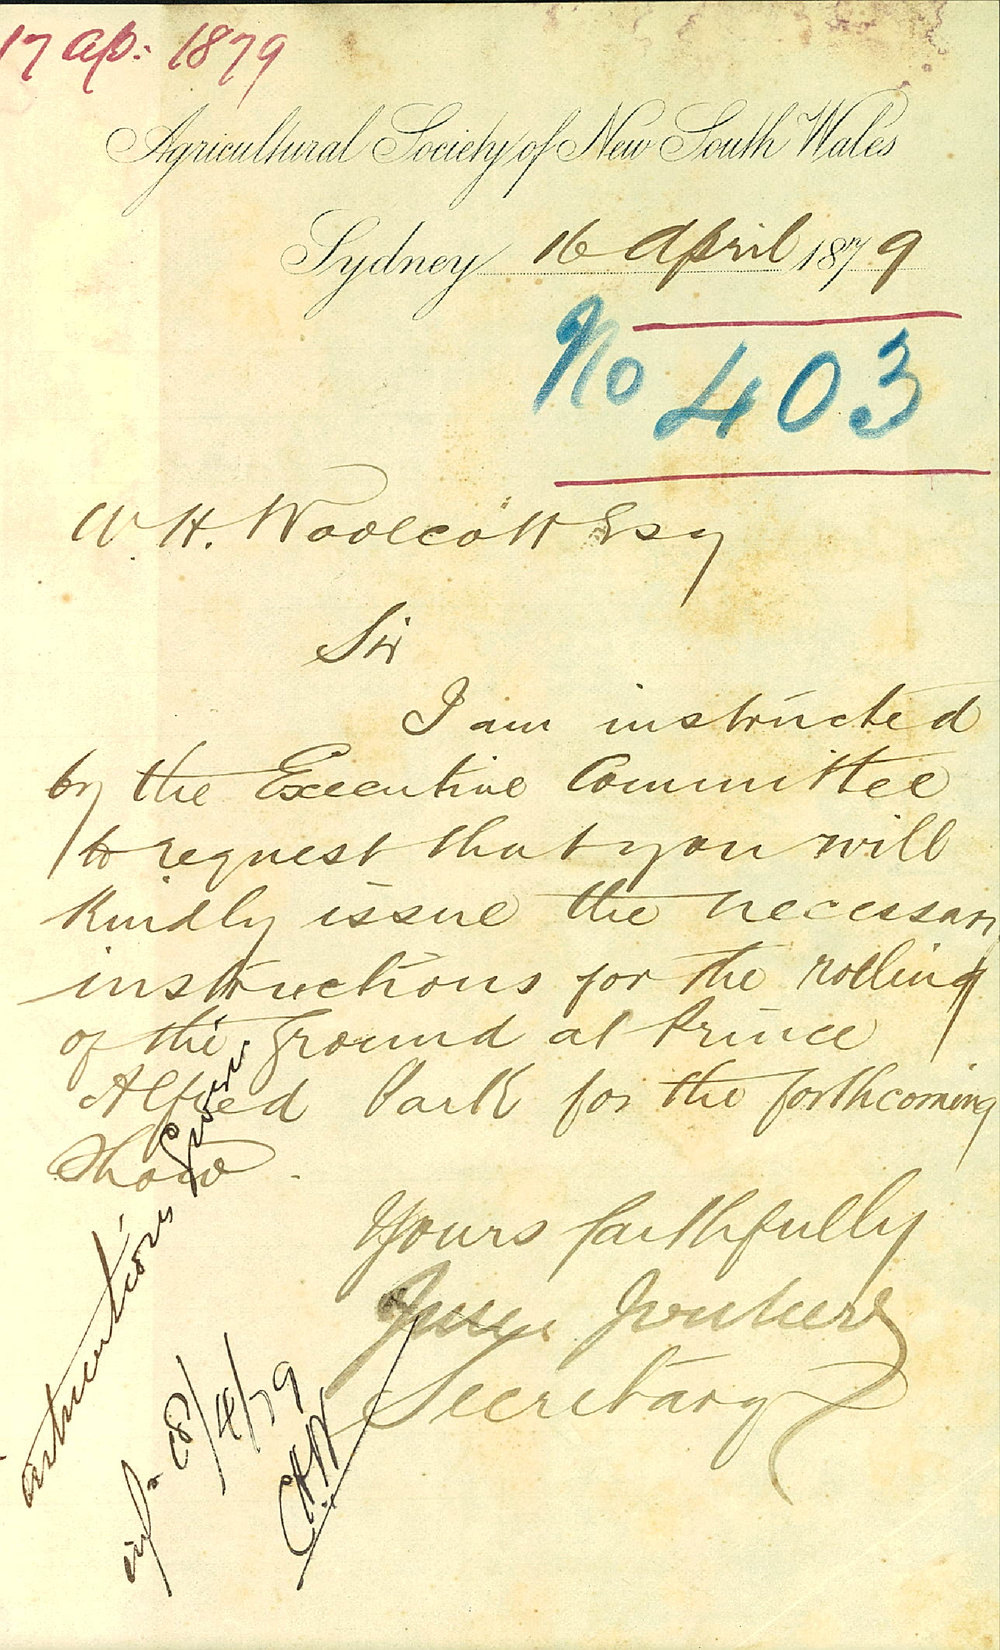 17 Ap: 1879
Agricultural Society of New South Wales
Sydney 16 April 1879
No 403
W. H. Woolcott Esq
Sir
I am instructed
by the Executive Committee
to request that you will
kindly issue the necessary
instructions for the rolling
of the ground at Prince
Alfred Park for the forthcoming
Show.
Yours faithfully
Jules Joubert
Secretary
instructions given
18/4/79